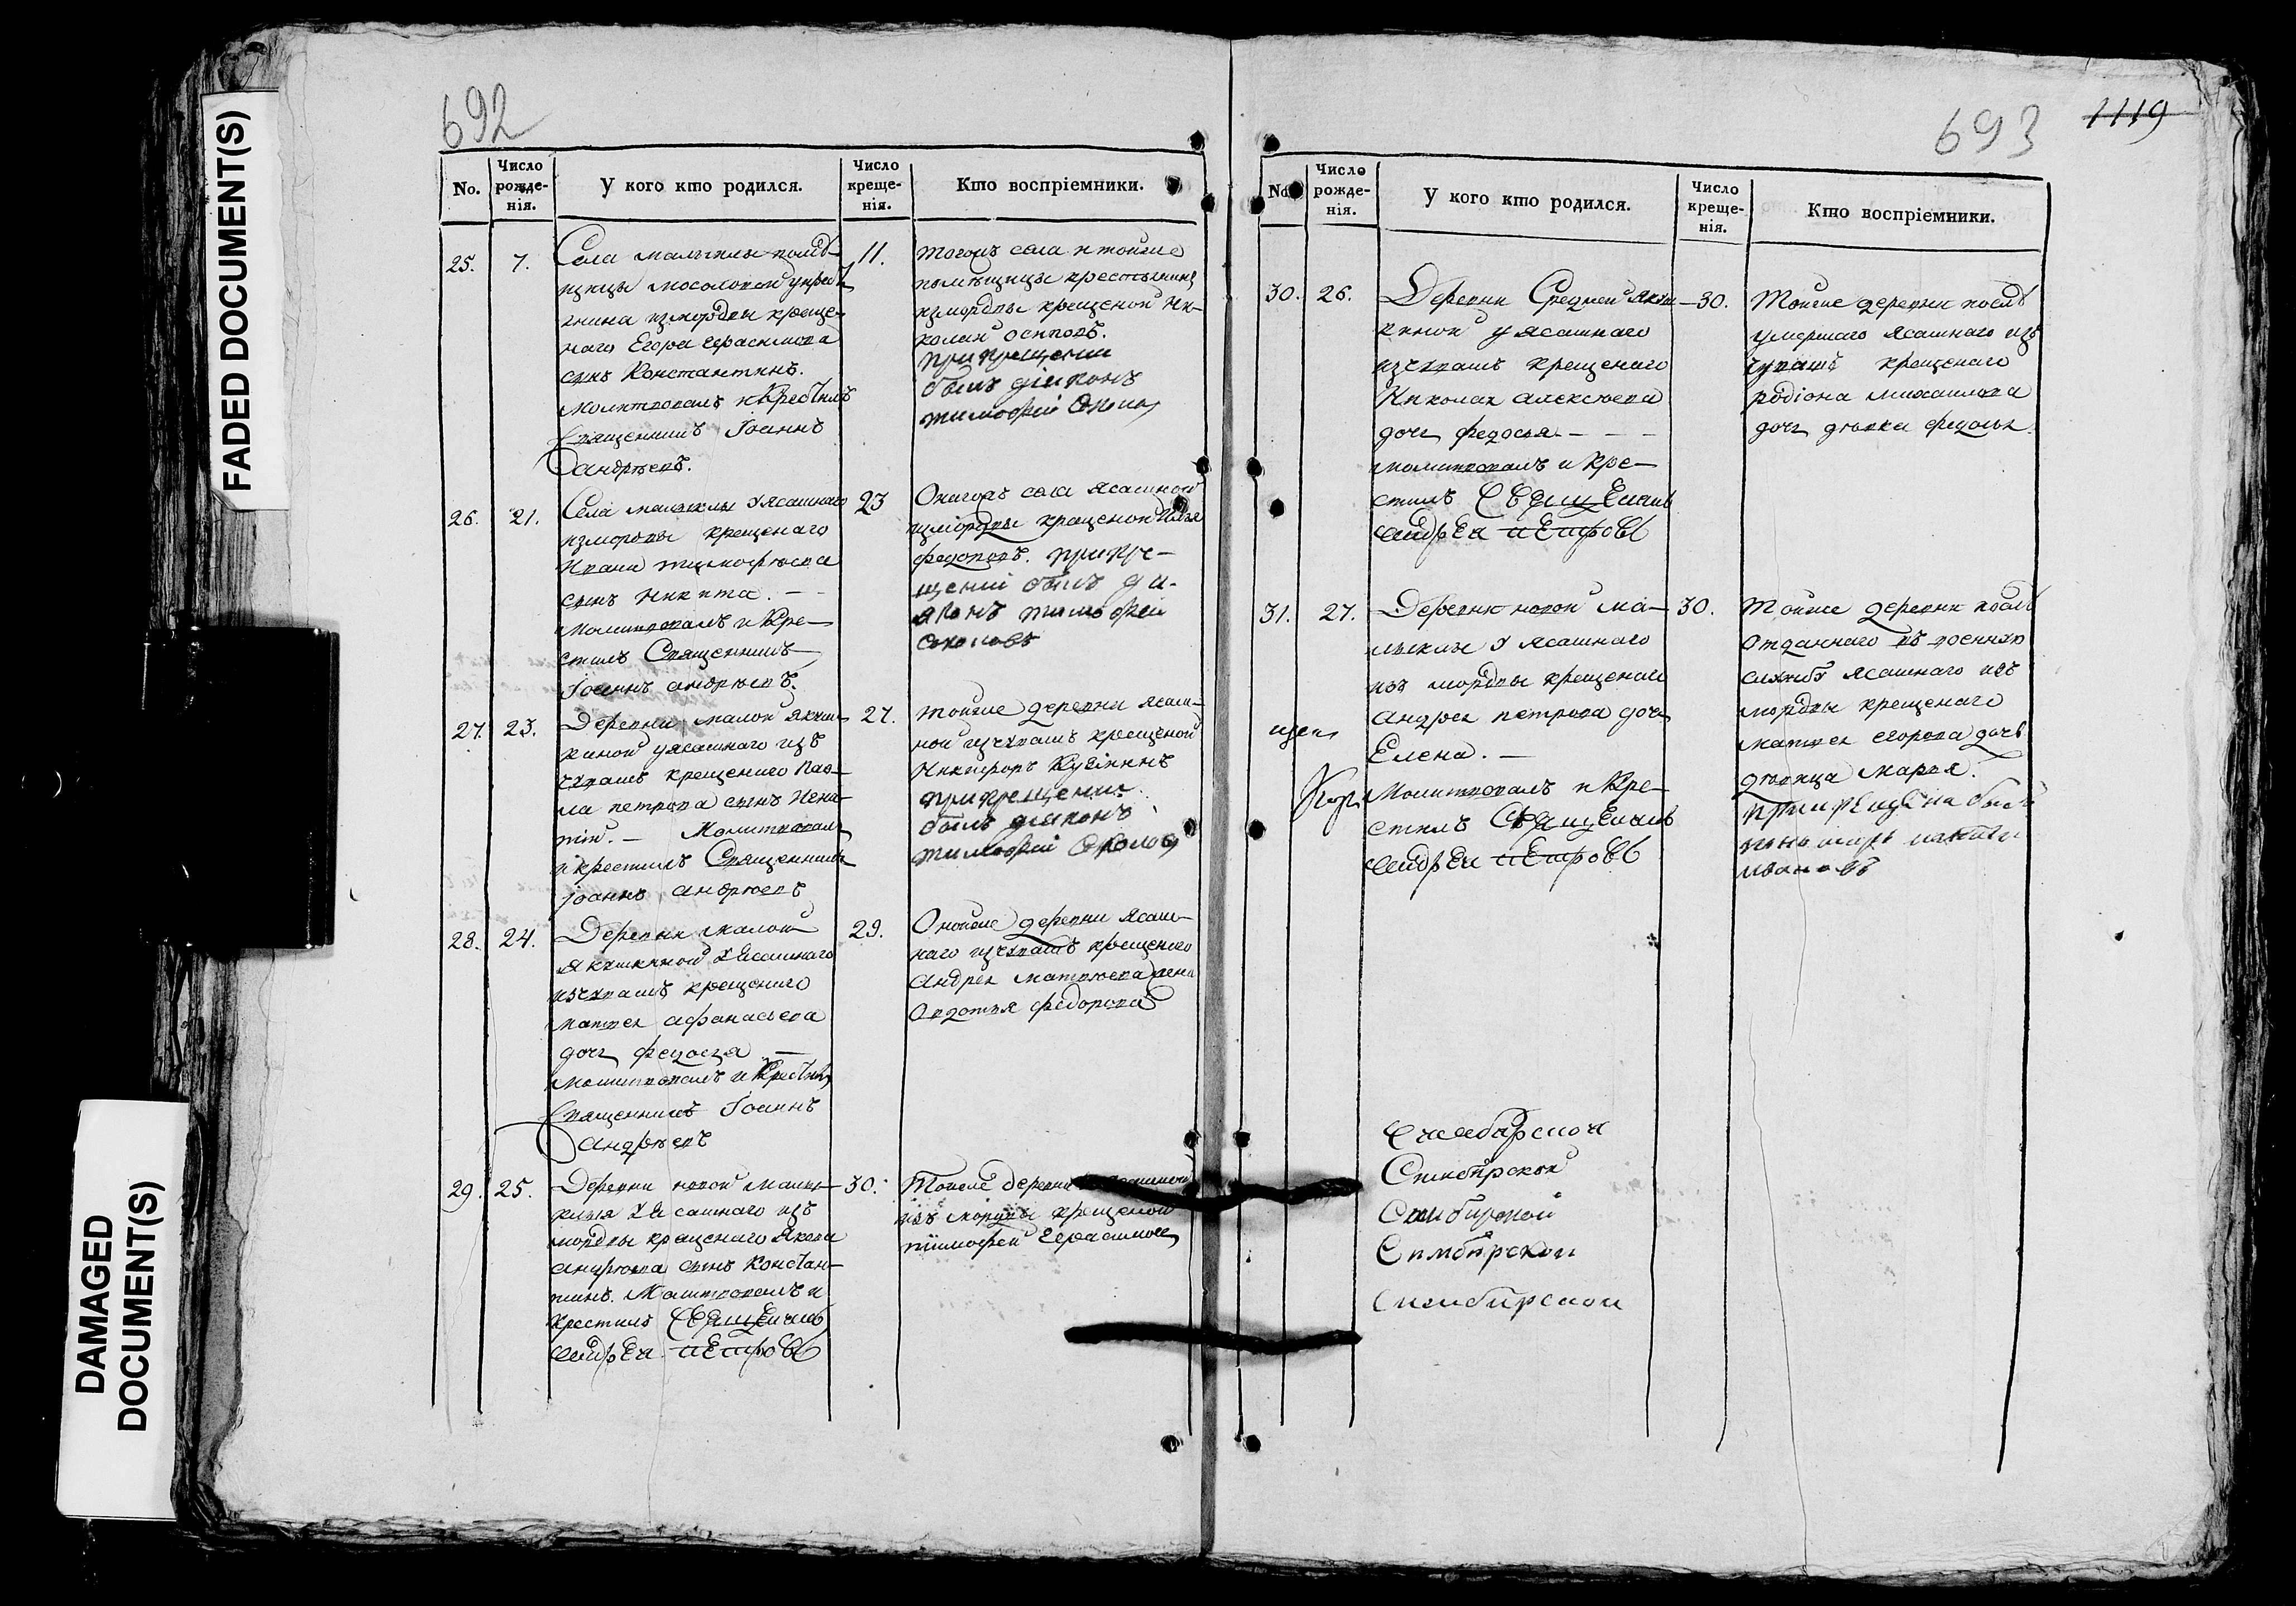 FADED DOCUMENT(S)
DAMAGED
DOCUMENT(S)
692
No.
Число
рожде-
нія.
У кого кто родился.
Число
креще-
нія.
Кто воспріемники.
25. 7.
Села малыклы помѣ-
щицы
измордвы креще-
наго Егора Герасимова
сынъ Константинъ.
молитвовалъ икрестилъ
Священникъ Іоаннъ
андрѣевъ.
11.
тогожъ села итойже
помѣщицы крестьянинъ
измордвы крещеной Ни-
колай осиповъ.
прикрещении
былъ діяконъ
тимофей
26. 21.
Села малыклы Уясашнаго
измордвы крещенаго
Ивана тимофѣева
сынъ никита. —
молитвовалъ икре-
стилъ Священникъ
Іоаннъ андрѣевъ.
23
Оногожъ села ясашной
измордвы крещеной Илья
федотовъ. прикре-
щеніи былъ ди-
яконъ тимофей
соколовъ
27. 23.
Деревни малой якуш-
киной уясашнаго изъ
чувашъ крещенаго пав-
ла петрова сынъ Игна-
тій. — Молитвовалъ
икрестилъ Священникъ
іоаннъ андрѣевъ
27.
тойже деревни ясаш-
ной изчувашъ крещеной
Никифоръ
прикрещении
былъ діяконъ
тимофей
28. 24.
Деревни малой
якушкиной Уясашнаго
изчувашъ крещенаго
матвея афанасьева
дочь федосья —
молитвовалъ икрестилъ
Священникъ Іоаннъ
андрѣевъ
29.
Онойже деревни ясаш-
наго изчувашъ крещенаго
андрея матвѣева жена
Овдотья федорова
29. 25.
Деревни новой малы-
клы Уясашнаго изъ
мордвы крещенаго Якова
андрѣева сынъ Констан-
тинъ. Молитвовалъ и
крестилъ Священикъ
андреи петровъ
30.
Тойже деревни ясашной
изъ мордвы крещеной
тимофей Герасимовъ
693
1119
No.
Число
рожде-
нія.
У кого кто родился.
Число
креще-
нія.
Кто воспріемники.
30. 26.
Деревни Средней Якуш-
киной уясашнаго
изчувашъ крещенаго
Николая алексѣева
дочь федосья — — —
молитвовалъ икре-
стилъ Священикъ
андреи петровъ
30.
Тойже деревни послѣ
умершаго ясашнаго изъ
чувашъ крещенаго
родіона михаилова
дочь дѣвка федосья
31. 27.
Деревни новой ма-
лыклы Уясашнаго
изъ мордвы крещенаго
андрея петрова дочь
Елена. —
Молитвовалъ икре-
стилъ Священикъ
андреи петровъ
30.
Тойже деревни послѣ
отданнаго въ военную
службу ясашнаго изъ
мордвы крещенаго
матвея егорова дочь
дѣвица марья.
при крещени былъ
пономарь
ивановъ
Симбирской
Симбирской
Симбирской
Симбирской
Симбирской